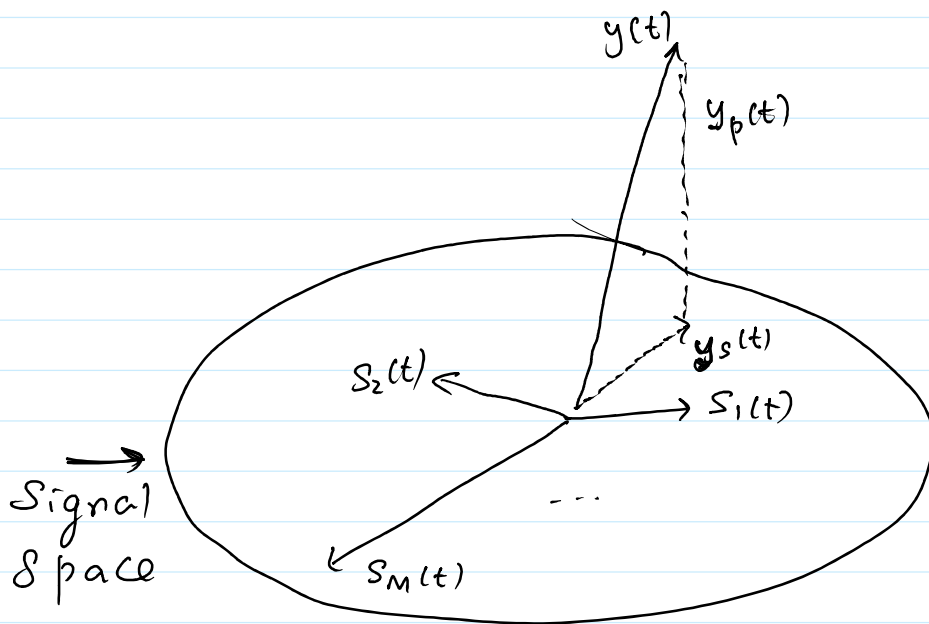 y(t)
y_p(t)
y_s(t)
S_2(t)
S_1(t)
Signal
Space
...
S_M(t)